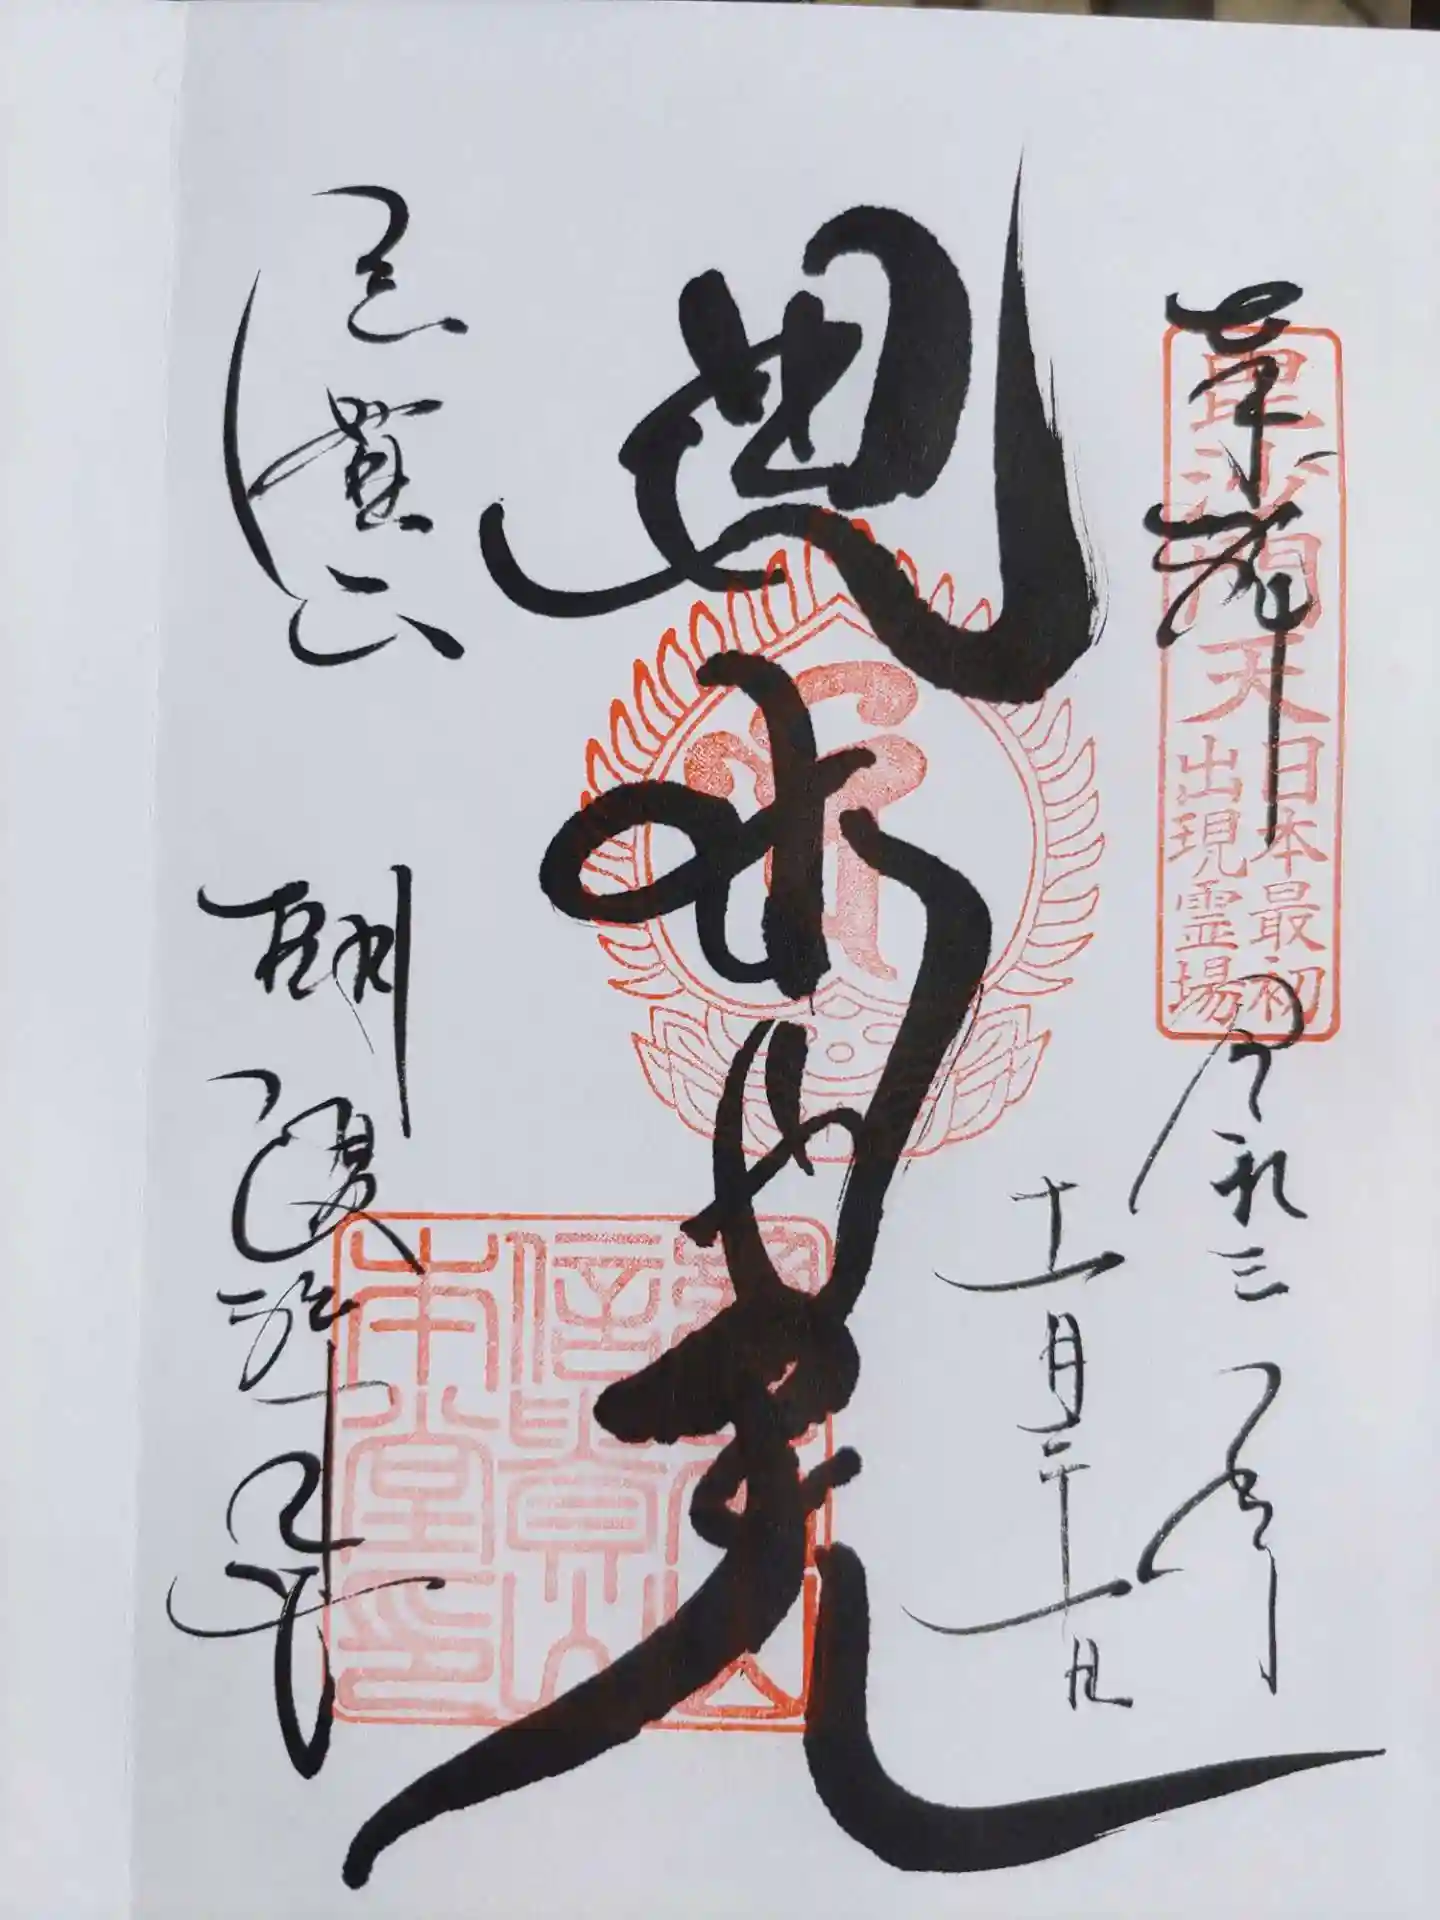 奉拝
毘沙門天
日本最初
出現霊場
令和三年
十一月二十一日
毘沙門天
信貴山
本堂印
信貴山
朝護孫子寺